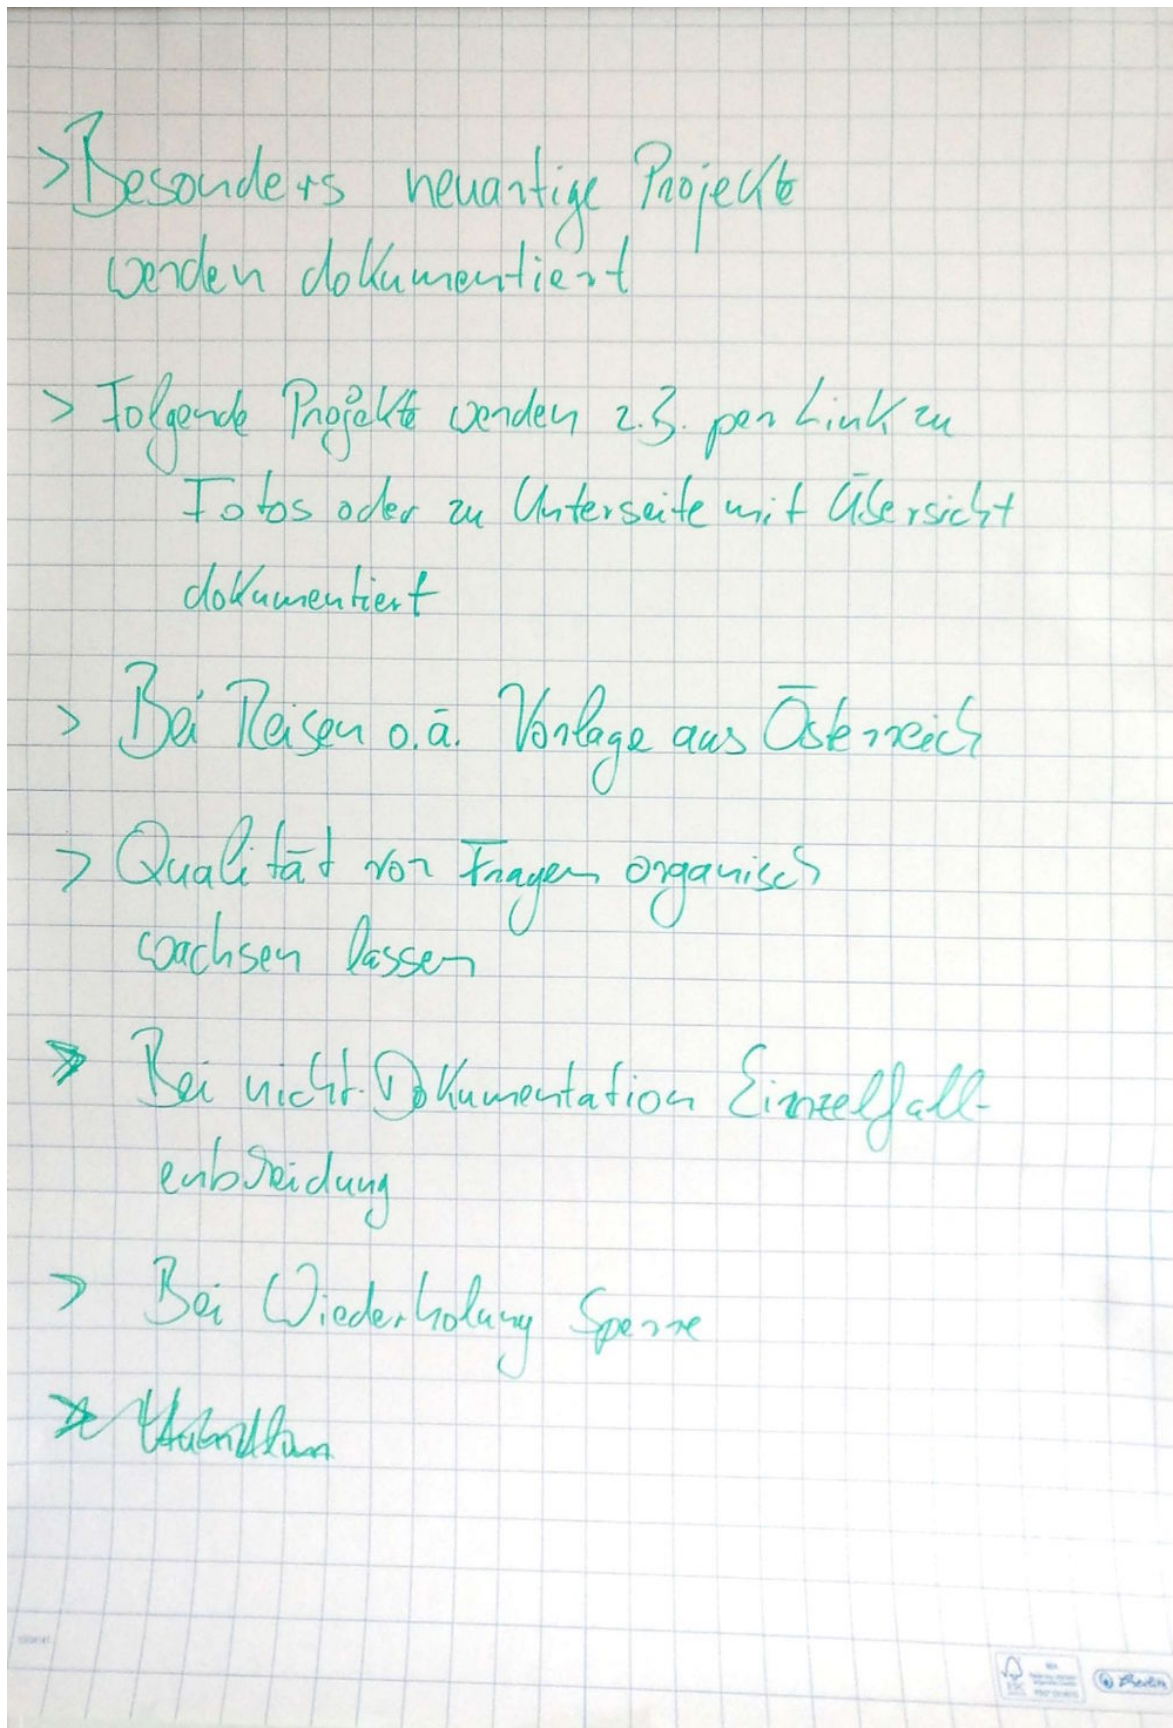 > Besonders neuartige Projekte
werden dokumentiert
> Folgende Projekte werden z.B. per Link zu
Fotos oder zu Unterseite mit Übersicht
dokumentiert
> Bei Reisen o.ä. Vorlage aus Österreich
> Qualität von Fragen organisch
wachsen lassen
> Bei nicht-Dokumentation Einzelfall-
entscheidung
> Bei Wiederholung Sperre
FSC
Berlin